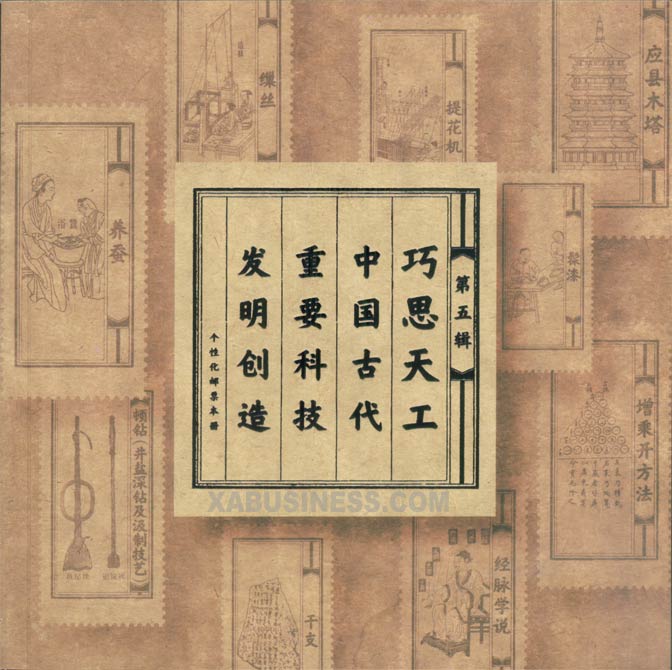 巧思天工
中国古代
重要科技
发明创造
第五辑
个性化邮票本册
缫丝
提花机
应县木塔
养蚕
浴蚕
髹漆
增乘开方法
顿钻(井盐深钻及汲制技艺)
干支
经脉学说
XABUSINESS.COM